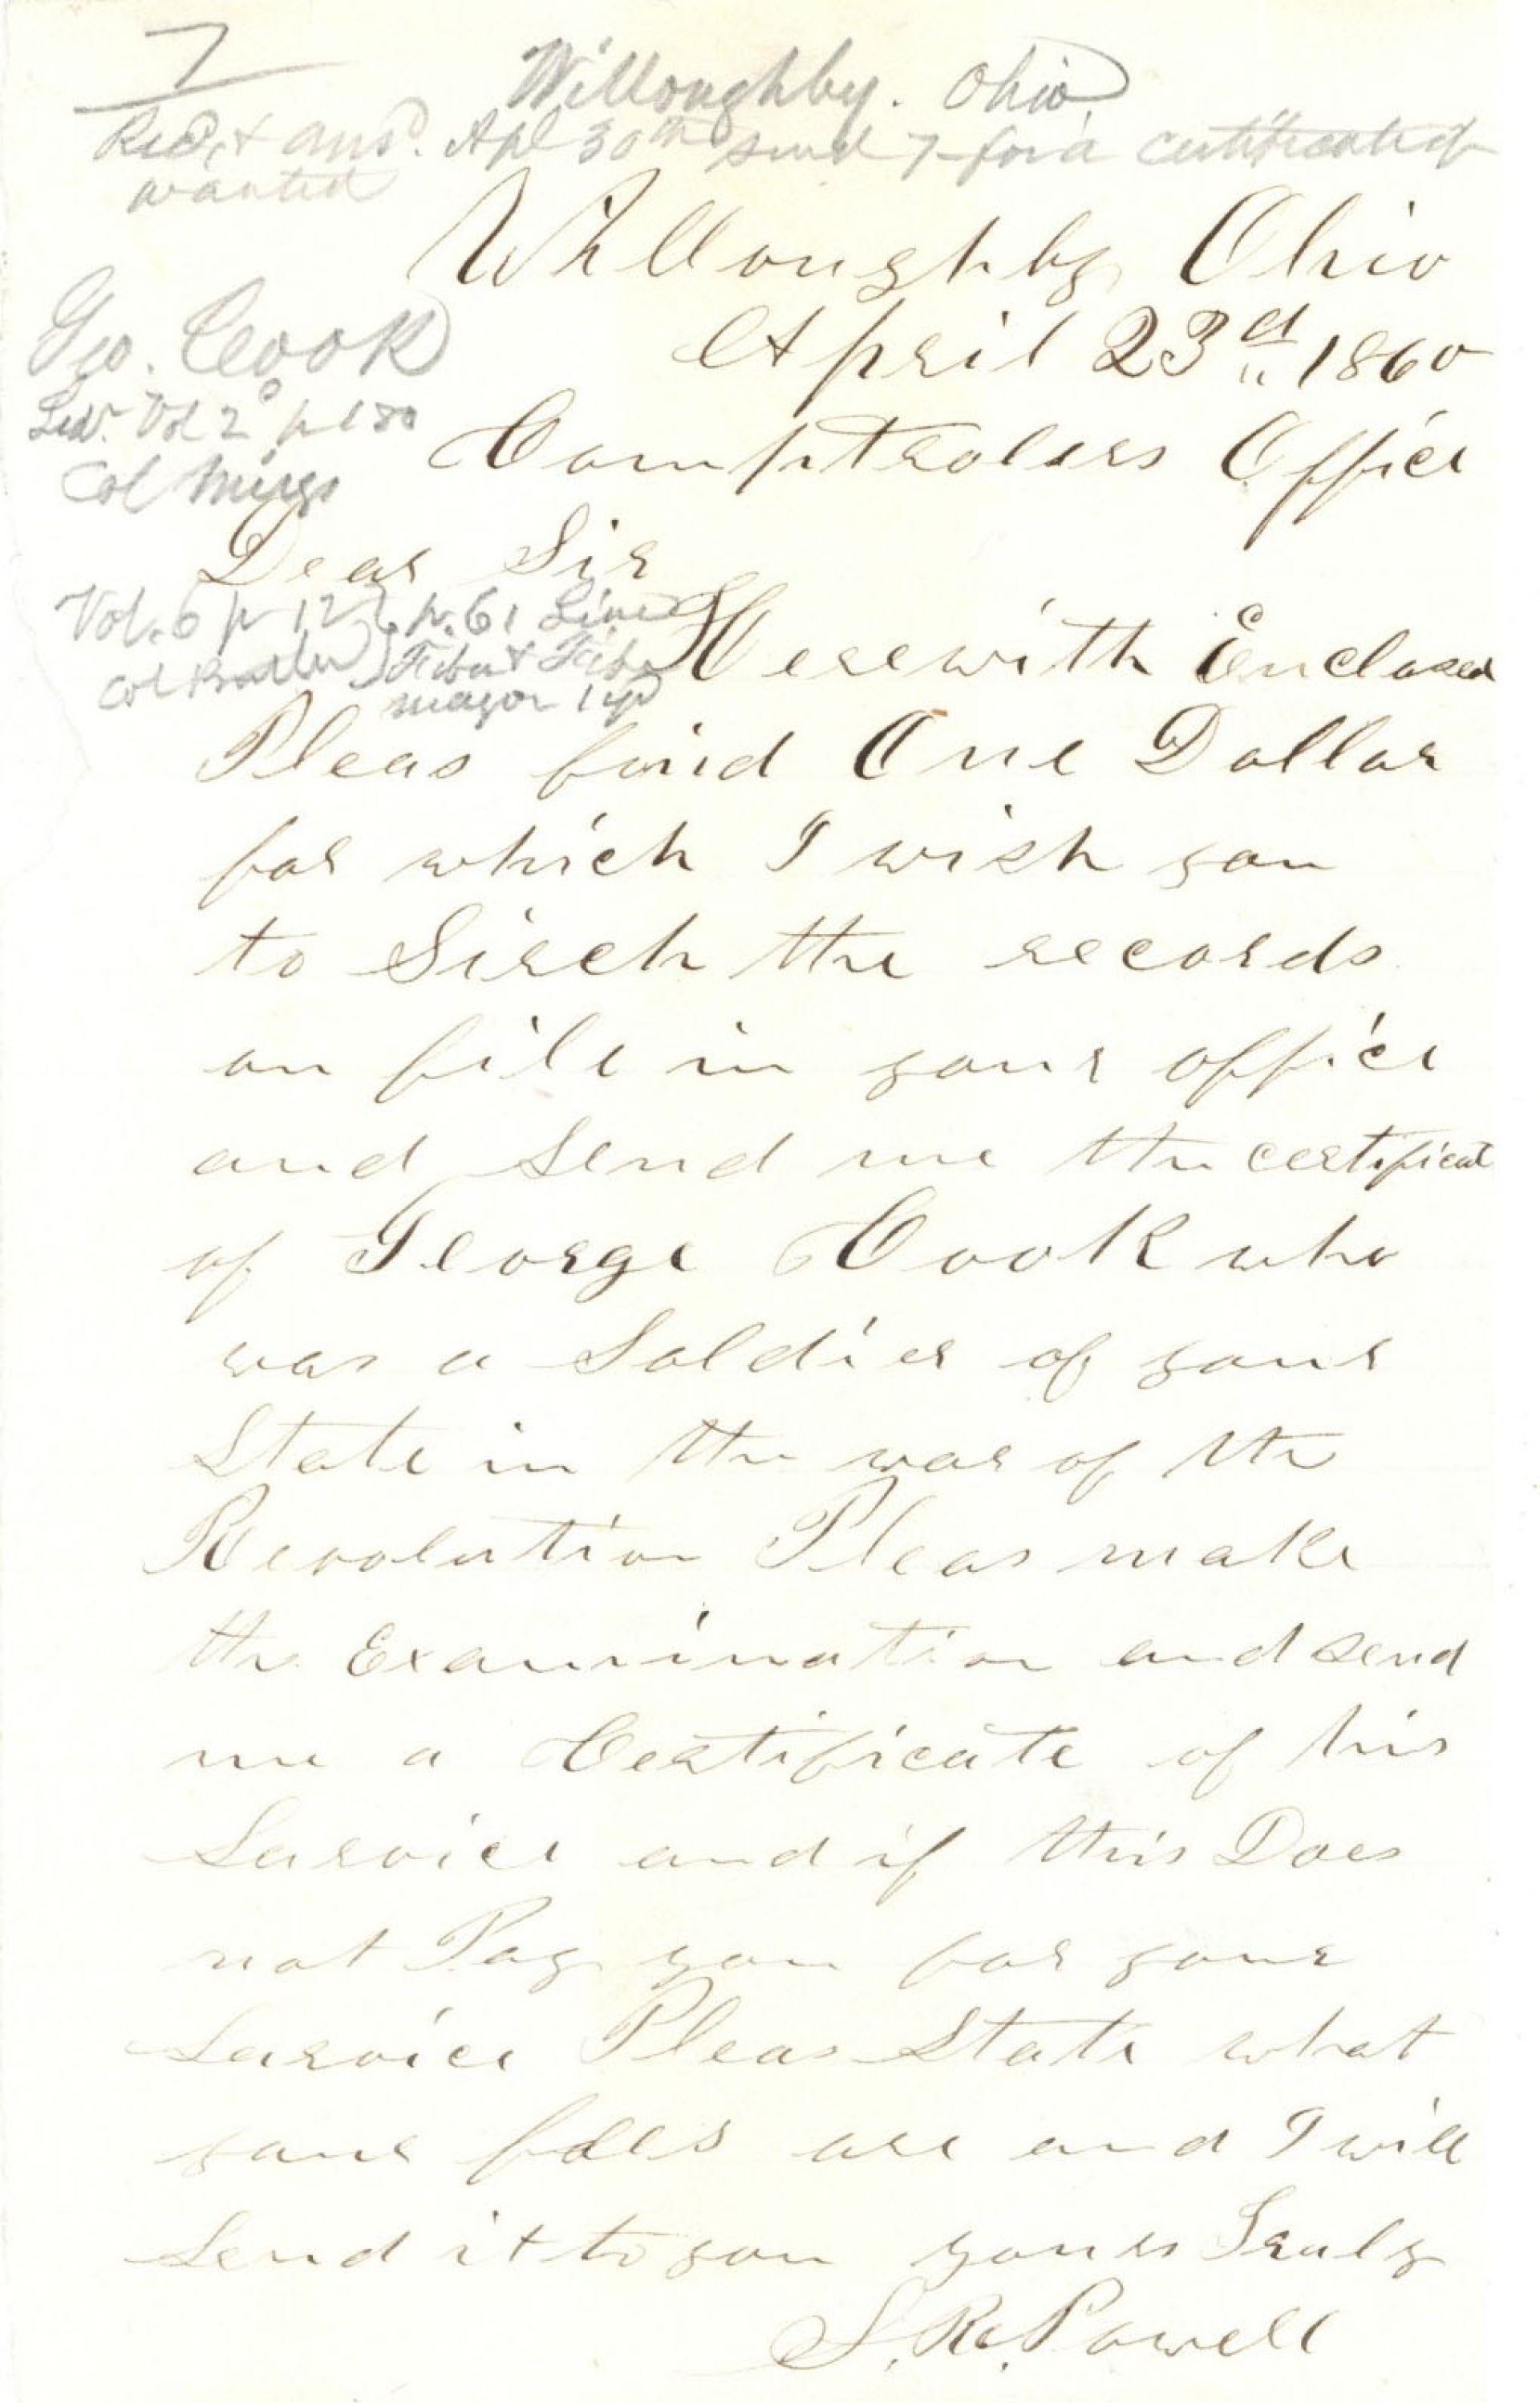 7
Willoughby. Ohio
Recd, & ansd. Apl 30th send 7 for a certificate if
wanted
Willoughby Ohio
Geo. Cook
April 23d 1860
Vol 2
Comptrolers Office
Col Meigs
Dear Sir
Vol. 6 p 122 p. 61
Herewith Enclosed
Col major
Pleas find One Dollar
for which I wish you
to Serch the records
on file in your office
and Send me the certificat
of George Cook who
was a Soldier of your
State in the war of the
Revolution Pleas make
the Examination and send
me a Certificate of his
Service and if this Does
not Pay you for your
Service Pleas State what
your fees are and I will
Send it to you yours Truly
S. R. Powell